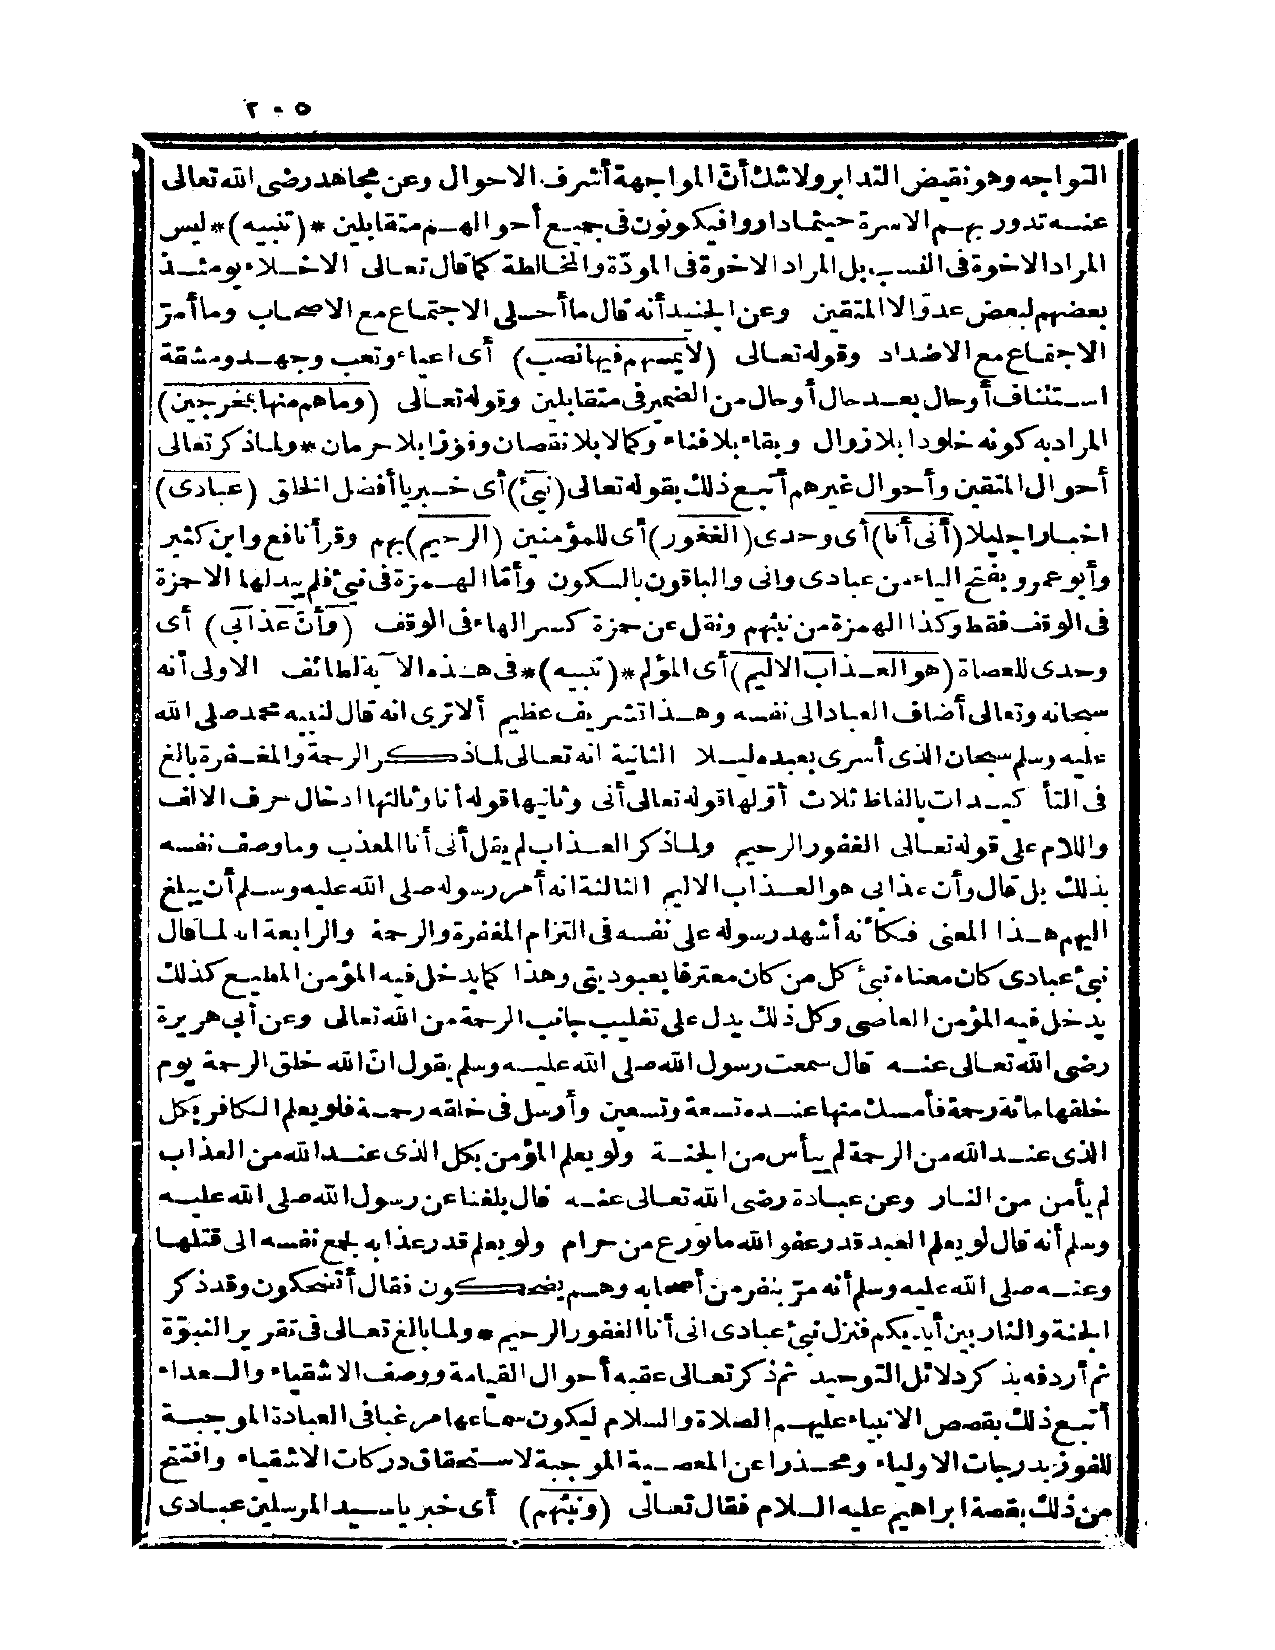 ٢٠٥
التواجه وهو نقيض التدابر ولاشك أنّ المواجهة أشرف الاحوال وعن مجاهد رضى الله تعالى
عنه تدور بهم الاسرة حيثما داروا فيكونون فى جميع أحوالهم متقابلين *(تنبيه)* ليس
المراد الاخوة فى النسب بل المراد الاخوة فى المودّة والمخالطة كما قال تعالى الاخلاء يومئذ
بعضهم لبعض عدوّ الا المتقين وعن الجنيد أنه قال ما أحلى الاجتماع مع الاصحاب وما أمرّ
الاجتماع مع الاضداد وقوله تعالى (لا يمسهم فيها نصب) أى اعياء وتعب وجهد ومشقة
استئناف أو حال بعد حال أو حال من الضمير فى متقابلين وقوله تعالى (وما هم منها بمخرجين)
المراد به كونه خلودا بلا زوال وبقاء بلا فناء وكمالا بلا نقصان وفوزا بلا حرمان * ولما ذكر تعالى
أحوال المتقين وأحوال غيرهم أتبع ذلك بقوله تعالى (نبئ) أى خبر يا أفضل الخلق (عبادى)
اخبارا جليلا (أنى أنا) أى وحدى (الغفور) أى للمؤمنين (الرحيم) بهم وقرأ نافع وابن كثير
وأبو عمرو بفتح الياء من عبادى وانى والباقون بالسكون وأمّا الهمزة فى نبئ فلم يبدلها الاحمزة
فى الوقف فقط وكذا الهمزة من نبئهم ونقل عن حمزة كسر الهاء فى الوقف (وأنّ عذابى) أى
وحدى للعصاة (هو العذاب الاليم) أى المؤلم *(تنبيه)* فى هذه الآية لطائف الاولى أنه
سبحانه وتعالى أضاف العباد الى نفسه وهذا تشريف عظيم ألا ترى انه قال لنبيه محمد صلى الله
عليه وسلم سبحان الذى أسرى بعبده ليلا الثانية انه تعالى لما ذكر الرحمة والمغفرة بالغ
فى التأكيدات بالفاظ ثلاث أوّلها قوله تعالى أنى وثانيها قوله أنا وثالثها ادخال حرف الالف
واللام على قوله تعالى الغفور الرحيم ولما ذكر العذاب لم يقل أنى أنا المعذب وما وصف نفسه
بذلك بل قال وأن عذابى هو العذاب الاليم الثالثة انه أمر رسوله صلى الله عليه وسلم أن يبلغ
اليهم هذا المعنى فكأنه أشهد رسوله على نفسه فى التزام المغفرة والرحمة والرابعة انه لما قال
نبئ عبادى كان معناه نبئ كل من كان معترفا بعبوديتى وهذا كما يدخل فيه المؤمن المطيع كذلك
يدخل فيه المؤمن العاصى وكل ذلك يدل على تغليب جانب الرحمة من الله تعالى وعن أبى هريرة
رضى الله تعالى عنه قال سمعت رسول الله صلى الله عليه وسلم يقول انّ الله خلق الرحمة يوم
خلقها مائة رحمة فأمسك منها عنده تسعة وتسعين وأرسل فى خلقه رحمة فلو يعلم الكافر بكل
الذى عند الله من الرحمة لم ييأس من الجنة ولو يعلم المؤمن بكل الذى عند الله من العذاب
لم يأمن من النار وعن عبادة رضى الله تعالى عنه قال بلغنا عن رسول الله صلى الله عليه
وسلم أنه قال لو يعلم العبد قدر عفو الله ما تورع من حرام ولو يعلم قدر عذابه لجمع نفسه الى قتلها
وعنه صلى الله عليه وسلم أنه مرّ بنفر من أصحابه وهم يضحكون فقال أتضحكون وقد ذكر
الجنة والنار بين أيديكم فنزل نبئ عبادى انى أنا الغفور الرحيم * ولما بالغ تعالى فى تقرير النبوّة
ثم أردفه بذكر دلائل التوحيد ثم ذكر تعالى عقبه أحوال القيامة ووصف الاشقياء والسعداء
أتبع ذلك بقصص الانبياء عليهم الصلاة والسلام ليكون سماعها مرغبا فى العبادة الموجبة
للفوز بدرجات الاولياء ومحذرا عن المعصية الموجبة لاستحقاق دركات الاشقياء وافتتح
من ذلك بقصة ابراهيم عليه السلام فقال تعالى (ونبئهم) أى خبر يا سيد المرسلين عبادى